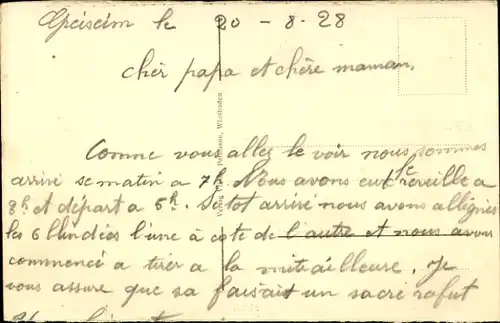 le 20 - 8 - 28
cher papa et chère maman,
Comme vous allez le voir nous sommes
arivé se matin a 7h. Nous avons eut le reveille a
3h et départ a 5h. Setot arivé nous avons allignés
les 6 blindées l'une à côte de l'autre et nous avons
commencé a tirer a la mitrailleuse. Je
vous assure que sa faisait un sacré rafut
Wiesbaden